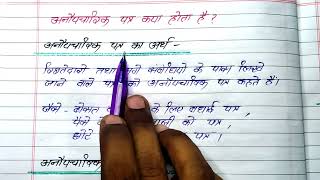 अनौपचारिक पत्र क्या होता है?
अनौपचारिक पत्र का अर्थ -
रिश्तेदारों तथा सगे संबंधियों के पास लिखे
जाने वाले पत्र को अनौपचारिक पत्र कहते हैं।
जैसे - दोस्त के लिए बधाई पत्र,
पैसे को पत्र,
छोटे पत्र।
अनौपचारिक